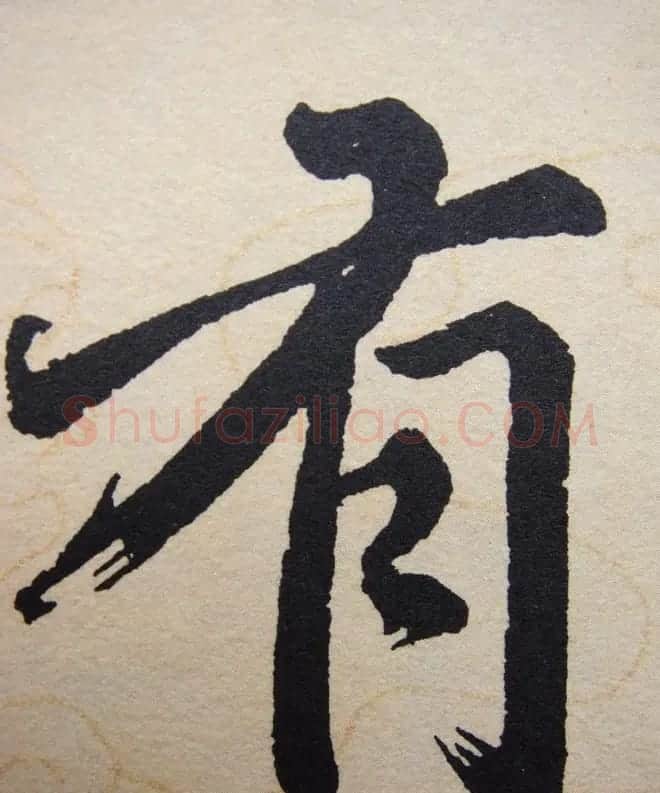 有
Shufaziliao.COM